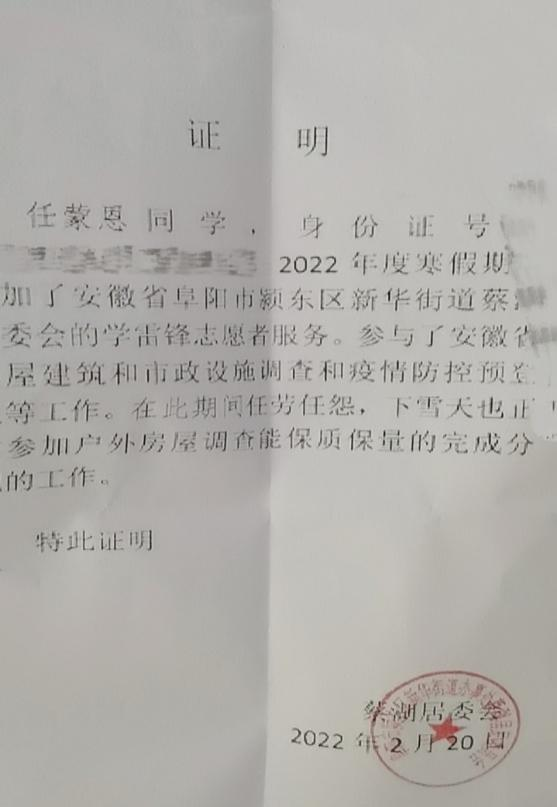 证 明
任蒙恩同学，身份证号
2022年度寒假期
加了安徽省阜阳市颍东区新华街道蔡
委会的学雷锋志愿者服务。参与了安徽省
屋建筑和市政设施调查和疫情防控预登
等工作。在此期间任劳任怨，下雪天也正
参加户外房屋调查能保质保量的完成分
的工作。
特此证明
蔡湖居委会
2022年2月20日